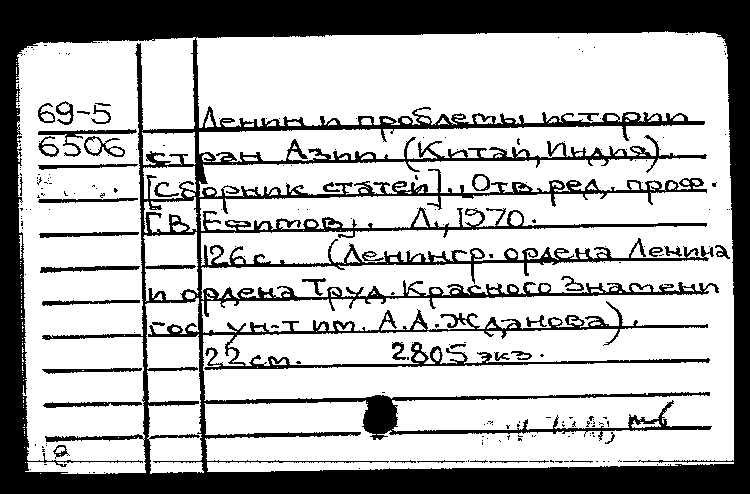 69-5 Ленин и проблемы истории
6506 стран Азии. (Китай, Индия).
[Сборник статей]. [Отв. ред. проф.
Г.В. Ефимов]. Л., 1970.
126 с. (Ленингр. ордена Ленина
и ордена Труд. Красного Знамени
гос. ун-т им. А.А. Жданова).
22 см. 2805 экз.
м-б
18